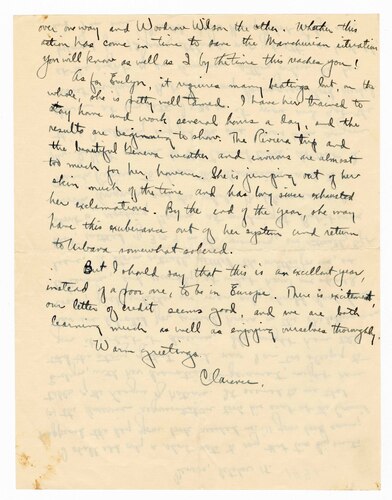 over one way and Woodrow Wilson the other. Whether this
action has come in time to save the Manchurian situation
you will know as well as I by the time this reaches you!
As for Evelyn, it requires many beatings but, on the
whole, she is pretty well tamed. I have her trained to
stay home and work several hours a day, and the
results are beginning to show. The Riviera trip and
the beautiful Geneva weather and environs are almost
too much for her, however. She is jumping out of her
skin much of the time and has long since exhausted
her exclamations. By the end of the year, she may
have this exuberance out of her system and return
to Urbana somewhat sobered.
But I should say that this is an excellent year,
instead of a poor one, to be in Europe. There is excitement,
our letter of credit seems good, and we are both
learning much as well as enjoying ourselves thoroughly.
Warm greetings
Clarence.